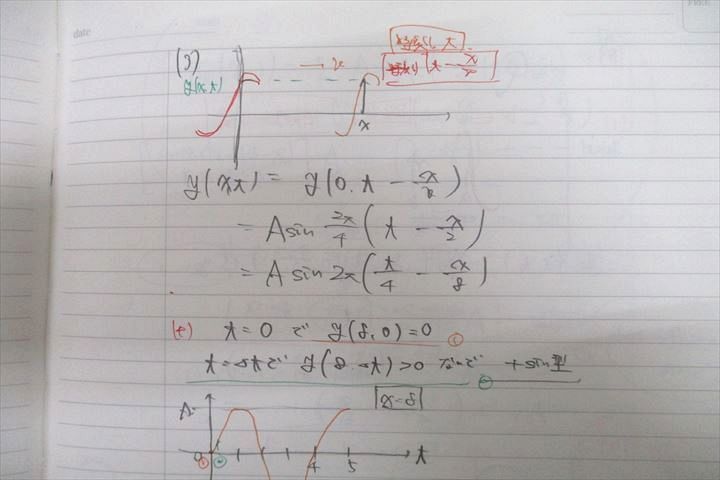 date
(3)
y(x,t)
→ v
t - x/v
x
y(x,t) = y(0, t - x/v)
= A sin 2π/4 (t - x/2)
= A sin 2π (t/4 - x/8)
(4) t = 0 で y(8,0) = 0 ①
t = Δt で y(8, Δt) > 0 なので + sin型 ②
x = 8
A
0 ① ② 4 5 t